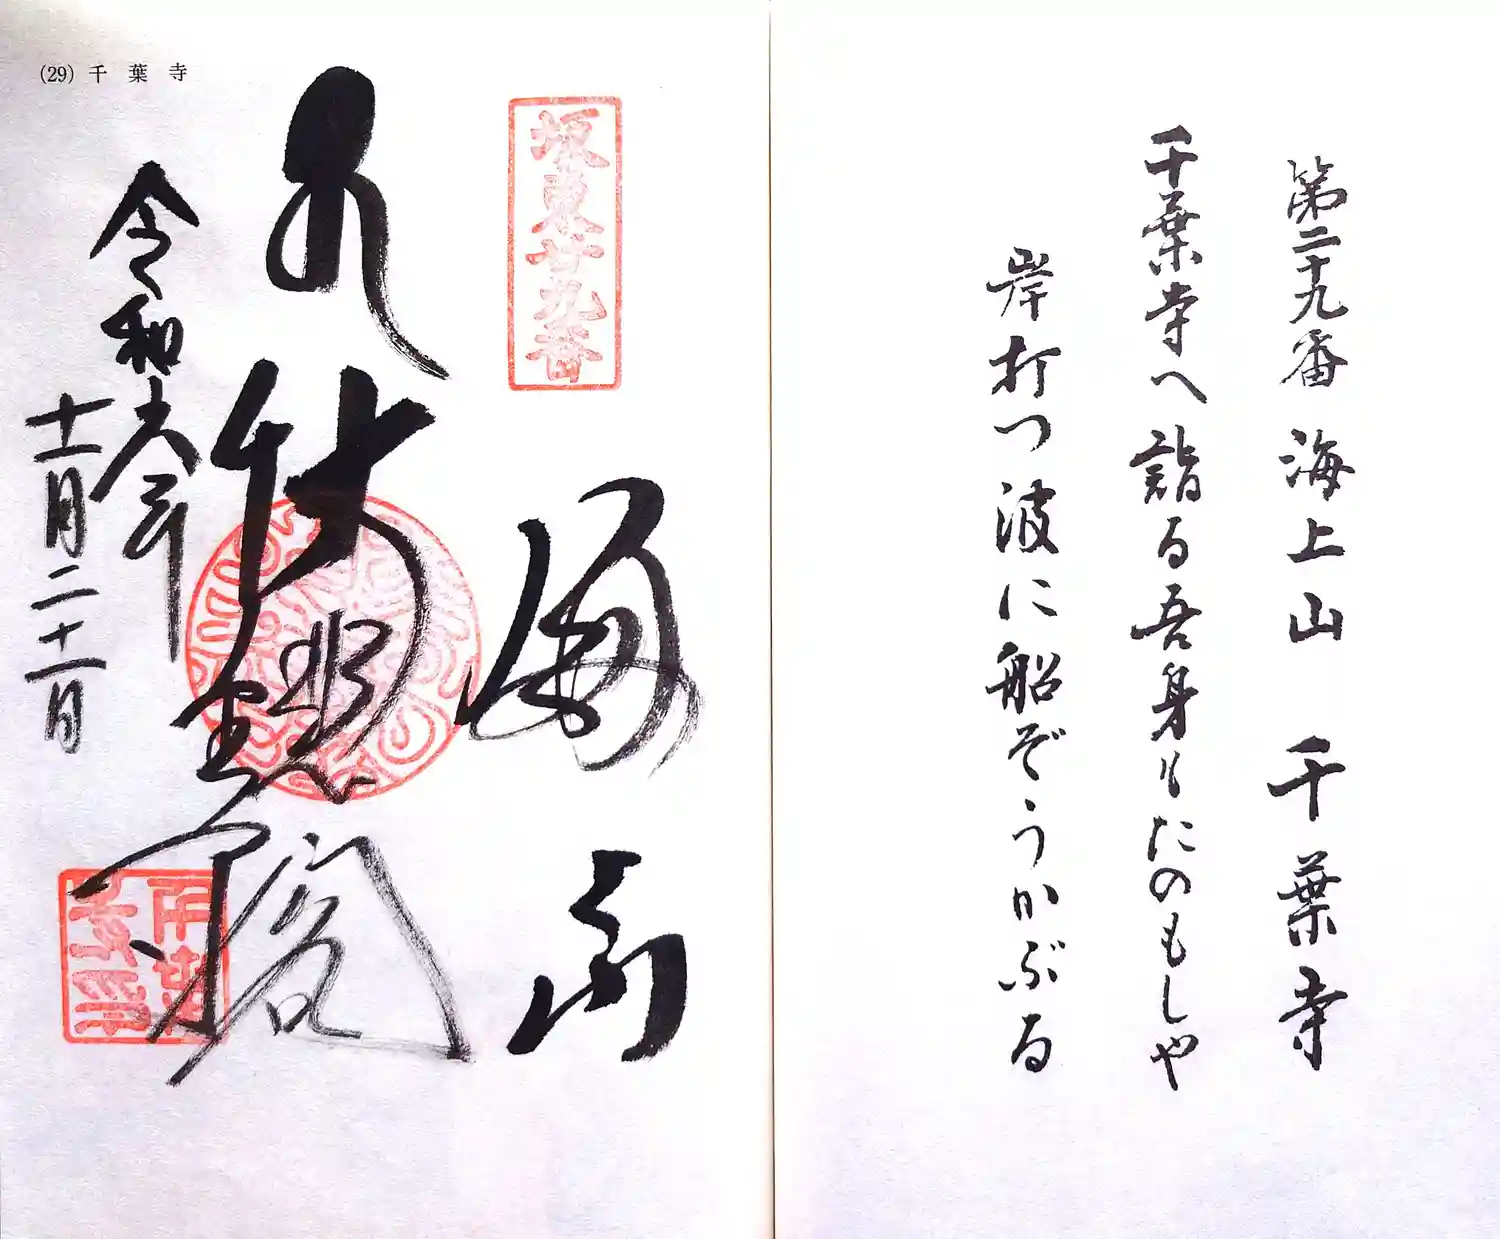 第二十九番 海上山 千葉寺
千葉寺へ詣る吾身もたのもしや
岸打つ波に船ぞうかぶる
(29) 千葉寺
坂東廿九番
海上山
令和六年
十一月二十一日